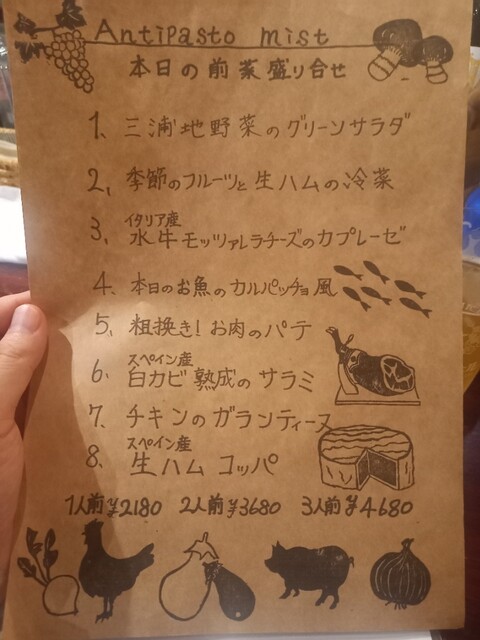 Antipasto mist
本日の前菜盛り合せ
1、三浦地野菜のグリーンサラダ
2、季節のフルーツと生ハムの冷菜
イタリア産
3、水牛モッツァレラチーズのカプレーゼ
4、本日のお魚のカルパッチョ風
5、粗挽き!お肉のパテ
スペイン産
6、白カビ熟成のサラミ
7、チキンのガランティーヌ
スペイン産
8、生ハムコッパ
1人前¥2180 2人前¥3680 3人前¥4680